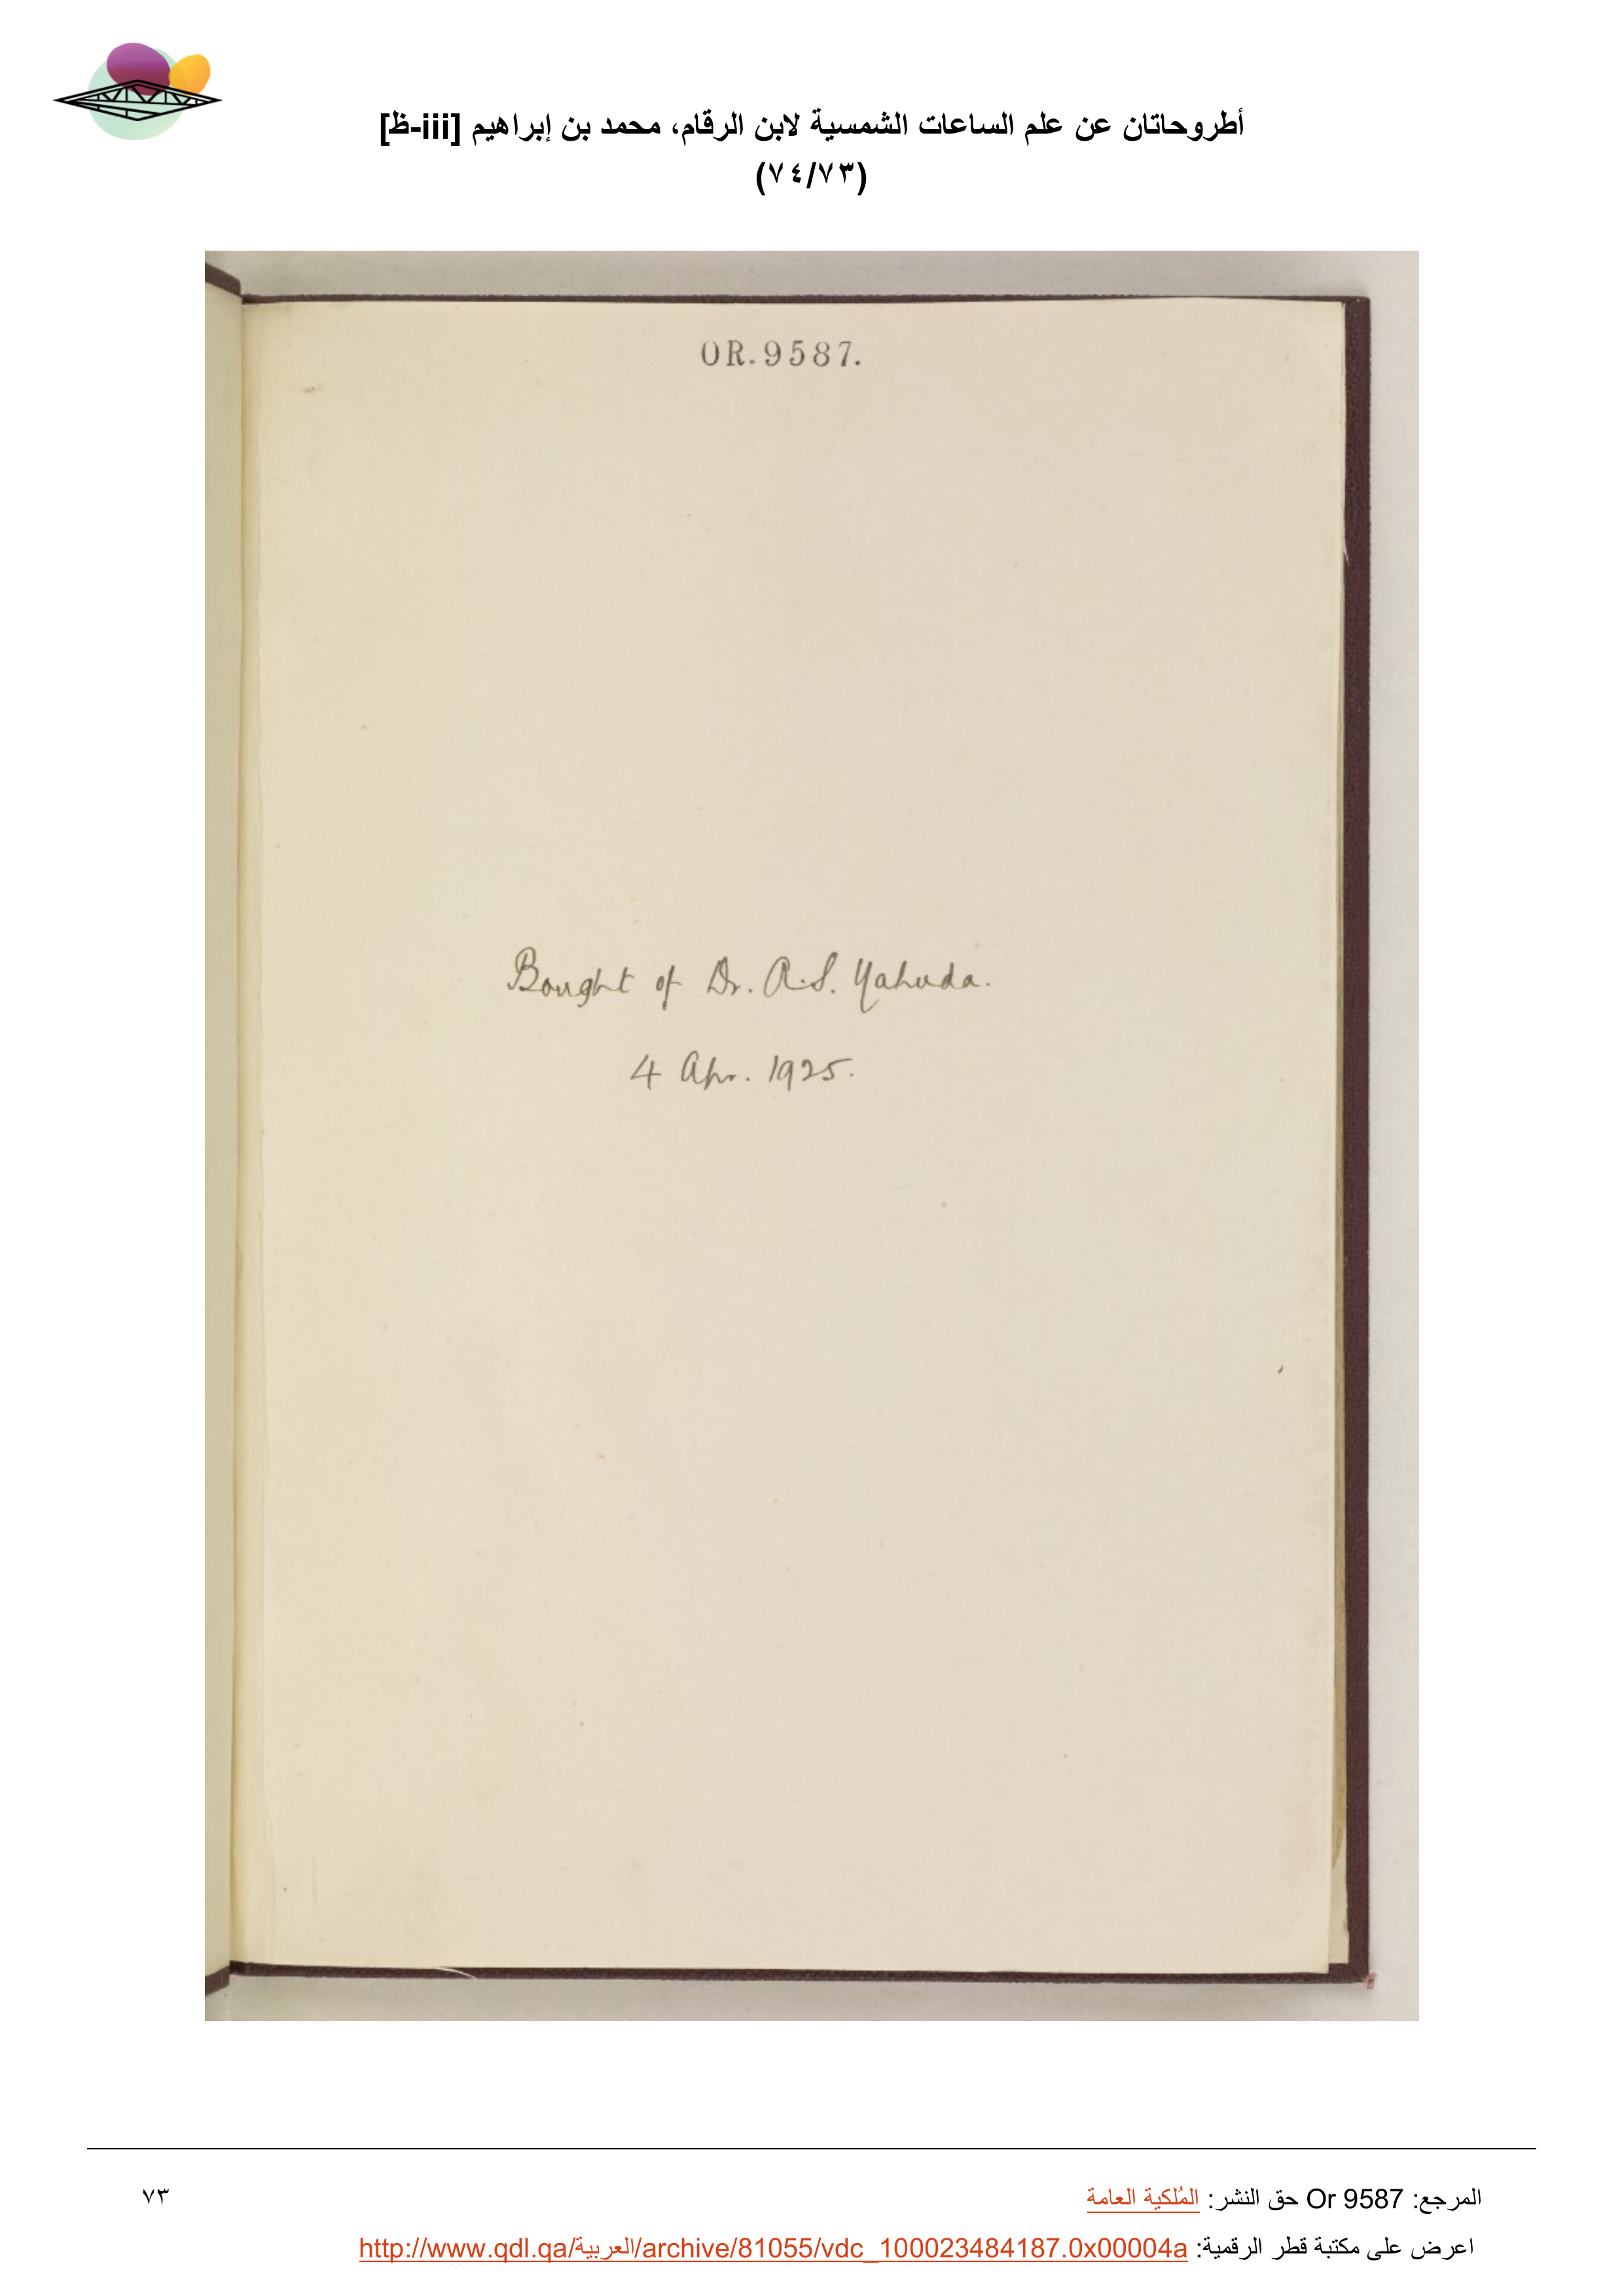 أطروحاتان عن علم الساعات الشمسية لابن الرقام، محمد بن إبراهيم [iii-ظ]
(٧٤/٧٣)
OR.9587.
Bought of Dr. A.S. Yahuda.
4 Apr. 1925.
المرجع: Or 9587 حق النشر: المُلكية العامة
٧٣
اعرض على مكتبة قطر الرقمية: http://www.qdl.qa/العربية/archive/81055/vdc_100023484187.0x00004a